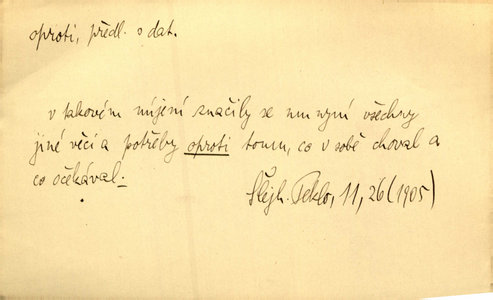 oproti, předl. s dat.
v takovém míjení značily se mu nyní všechny
jiné věci a potřeby oproti tomu, co v sobě choval a
co očekával.
Šlejh. Peklo, 11, 26 (1905)